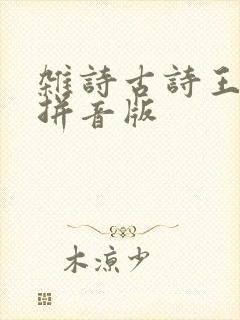 雑詩古詩王
拼音版
木涼少